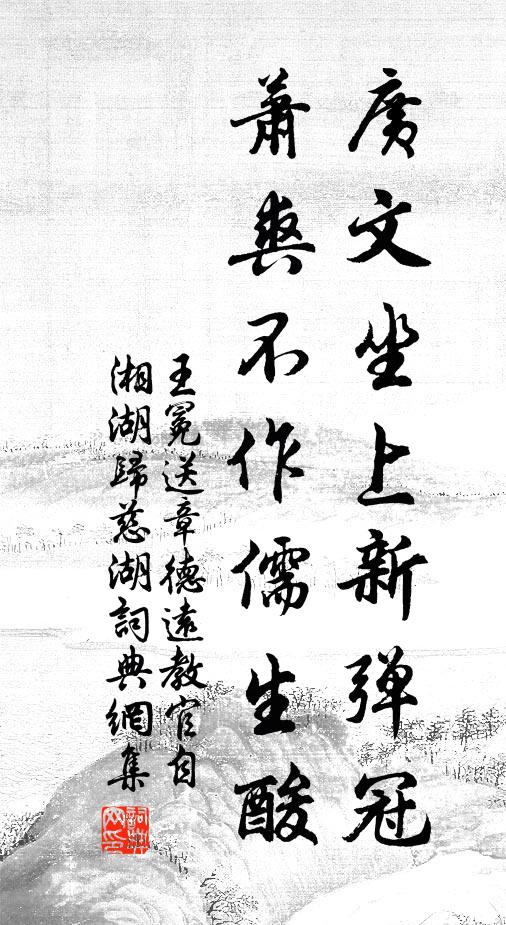 廣文坐上新弾冠
蕭爽不作儒生酸
王冕送章德遠教官自
湘湖歸慈湖詞典網集